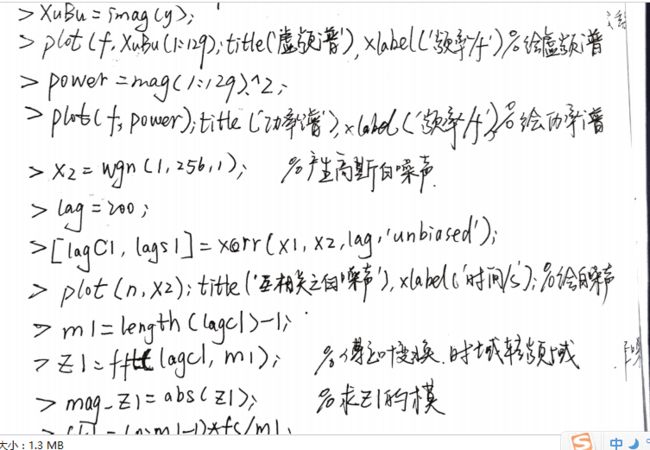 > XuBu = imag(y);
> plot(f, XuBu(1:129); title('虚频谱'), xlabel('频率/f') %绘虚频谱
> power = mag(1:129).^2;
> plot(f, power); title('功率谱'), xlabel('频率/f') %绘功率谱
> x2 = wgn(1,256,1); %产生高斯白噪声
> lag = 200;
> [lagC1, lags1] = xcorr(x1, x2, lag, 'unbiased');
> plot(n, x2); title('互相关之白噪声'), xlabel('时间/s'); %绘白噪声
> m1 = length(lagc1)-1;
> z1 = fft(lagc1, m1); %傅立叶变换.时域转频域
> mag_z1 = abs(z1); %求z1的模
大小: 1.3 MB
中